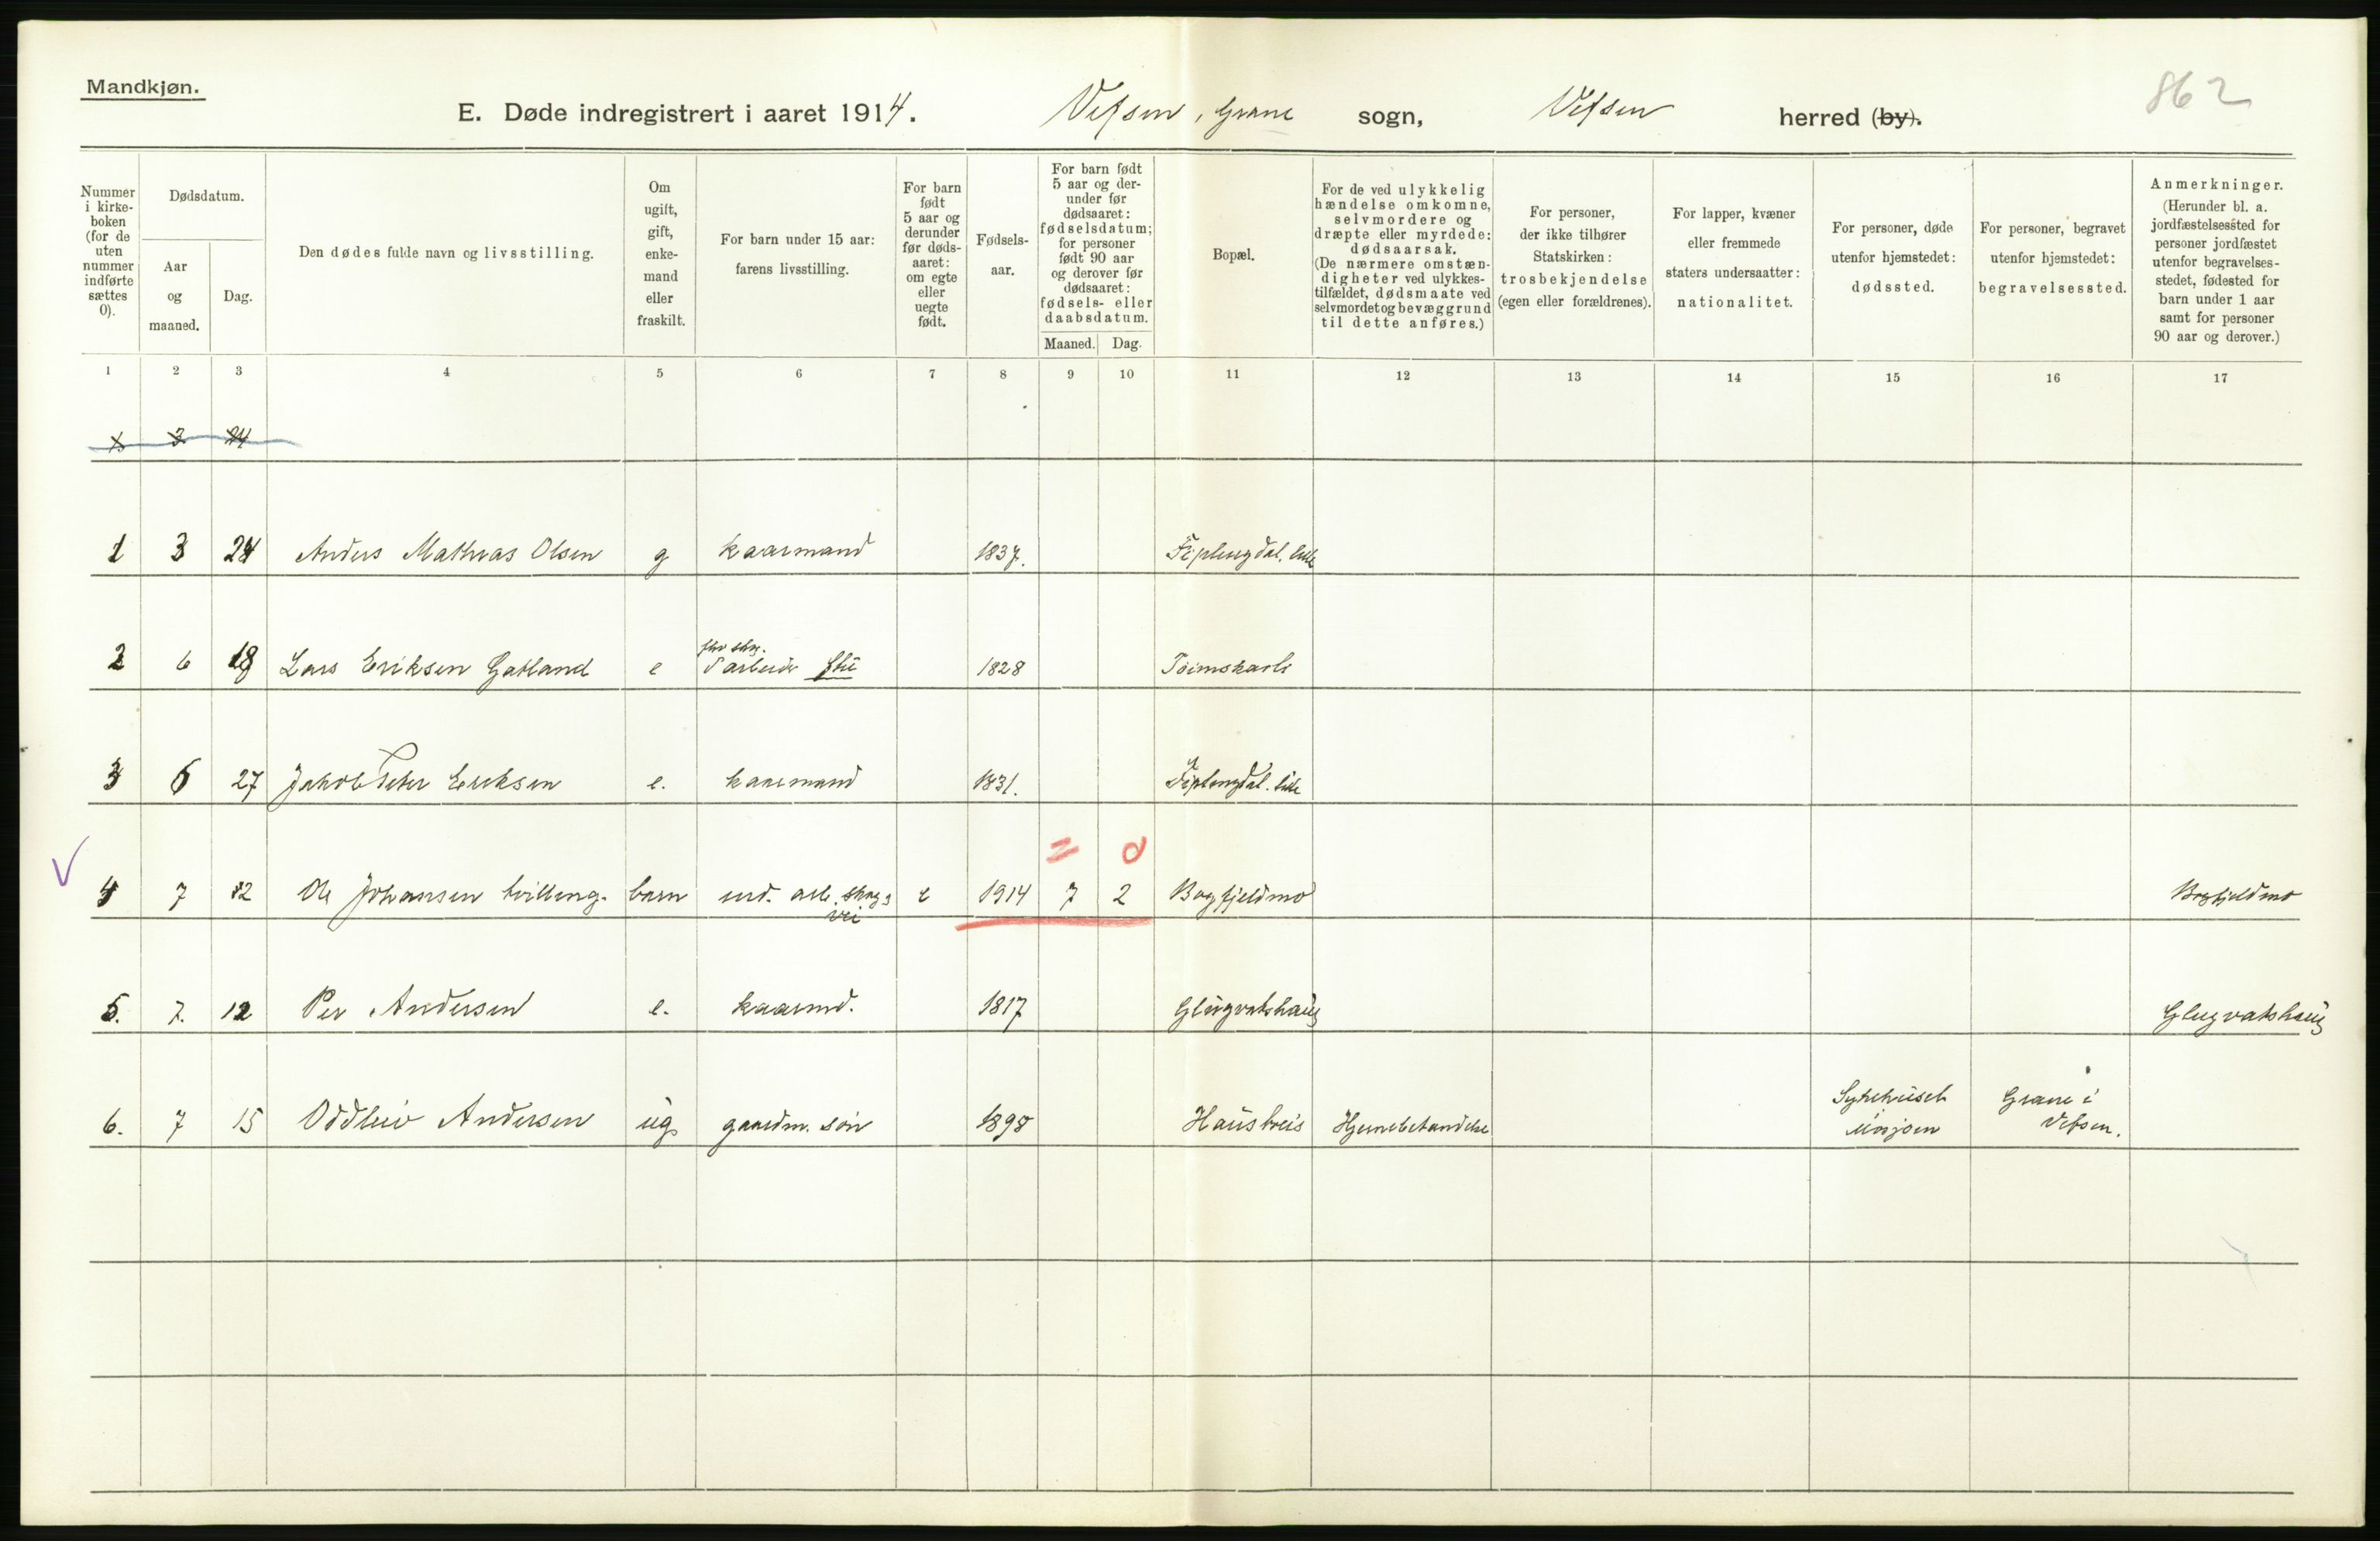 Mandkjøn.
E. Døde indregistrert i aaret 1914. Vefsen, Grane sogn, Vefsen herred (by).
862
Nummer i kirke-boken (for de uten nummer indførte sættes 0).
Dødsdatum.
Aar og maaned.
Dag.
Den dødes fulde navn og livsstilling.
Om ugift, gift, enke-mand eller fraskilt.
For barn under 15 aar: farens livsstilling.
For barn født 5 aar og derunder før døds-aaret: om egte eller uegte født.
Fødsels-aar.
For barn født 5 aar og der-under før dødsaaret: fødselsdatum; for personer født 90 aar og derover før dødsaaret: fødsels- eller daabsdatum.
Maaned. Dag.
Bopæl.
For de ved ulykkelig hændelse omkomne, selvmordere og dræpte eller myrdede: dødsaarsak. (De nærmere omstæn-digheter ved ulykkes-tilfældet, dødsmaate ved selvmordet og bevæggrund til dette anføres.)
For personer, der ikke tilhører Statskirken: trosbekjendelse (egen eller forældrenes).
For lapper, kvæner eller fremmede staters undersaatter: nationalitet.
For personer, døde utenfor hjemstedet: dødssted.
For personer, begravet utenfor hjemstedet: begravelsessted.
Anmerkninger. (Herunder bl. a. jordfæstelsessted for personer jordfæstet utenfor begravelses-stedet, fødested for barn under 1 aar samt for personer 90 aar og derover.)
1 2 3 4 5 6 7 8 9 10 11 12 13 14 15 16 17
1 3 24
1 3 24 Anders Mathias Olsen g kaarmand 1837. Fiplingdal. lille
2 6 18 Lars Eriksen Gatland e arbeider 1828 Toimskarle
3 6 27 Jakob Peter Eriksen e. kaarmand 1831. Fiplingdal. lille
= 0
4 7 12 Ole Johansen tvilling. barn ind. arb. skog & vei e 1914 7 2 Bogfjeldmo Bogfjeldmo
5. 7. 12 Per Andersen e. kaarmd. 1817 Glugvatshaug Glugvatshaug
6. 7 15 Oddleiv Andersen ug gaardm. søn 1898 Haustreis Hjernebetændelse Sykehuset Mosjøen Grane i Vefsen.